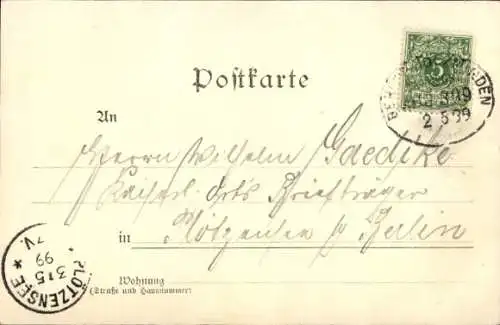 Postkarte
An
Herrn Wilhelm Gaedtke
Kaiserl. Orts Briefträger
in Plötzensee b/ Berlin
Wohnung
(Straße und Hausnummer)
5
2 5 99
PLÖTZENSEE *
3 15
99
7V.